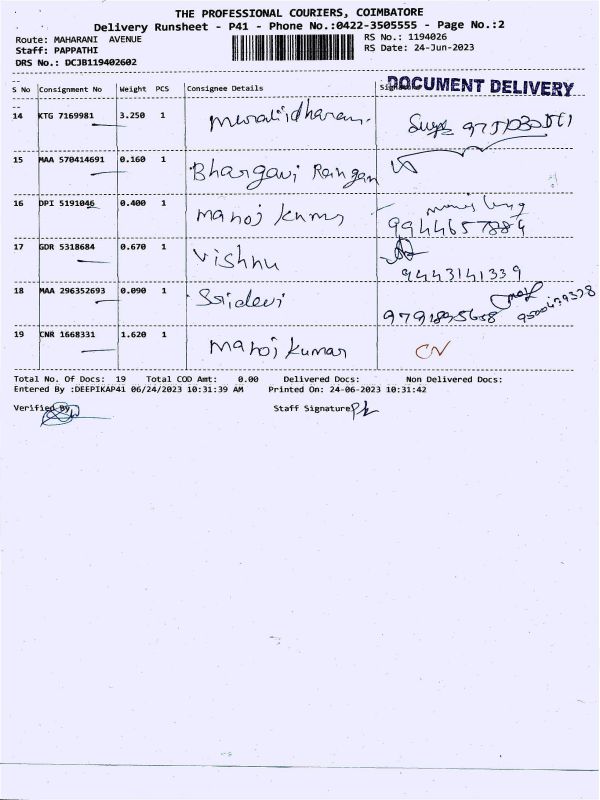 THE PROFESSIONAL COURIERS, COIMBATORE
Delivery Runsheet - P41 - Phone No.:0422-3505555 - Page No.:2
Route: MAHARANI AVENUE
RS No.: 1194026
Staff: PAPPATHI
RS Date: 24-Jun-2023
DRS No.: DCJB119402602
DOCUMENT DELIVERY
S No Consignment No Weight PCS Consignee Details
14 KTG 7169981 3.250 1 Muralidharan.
15 MAA 570414691 0.160 1 Bhargavi Rangan
16 DPI 5191046 0.400 1 Manoj kumar
17 GDR 5318684 0.670 1 Vishnu 9443141339
18 MAA 296352693 0.090 1 Sridevi
19 CNR 1668331 1.620 1 Manoj kumar CN
Total No. Of Docs: 19 Total COD Amt: 0.00 Delivered Docs: Non Delivered Docs:
Entered By :DEEPIKAP41 06/24/2023 10:31:39 AM Printed On: 24-06-2023 10:31:42
Verified By
Staff Signature